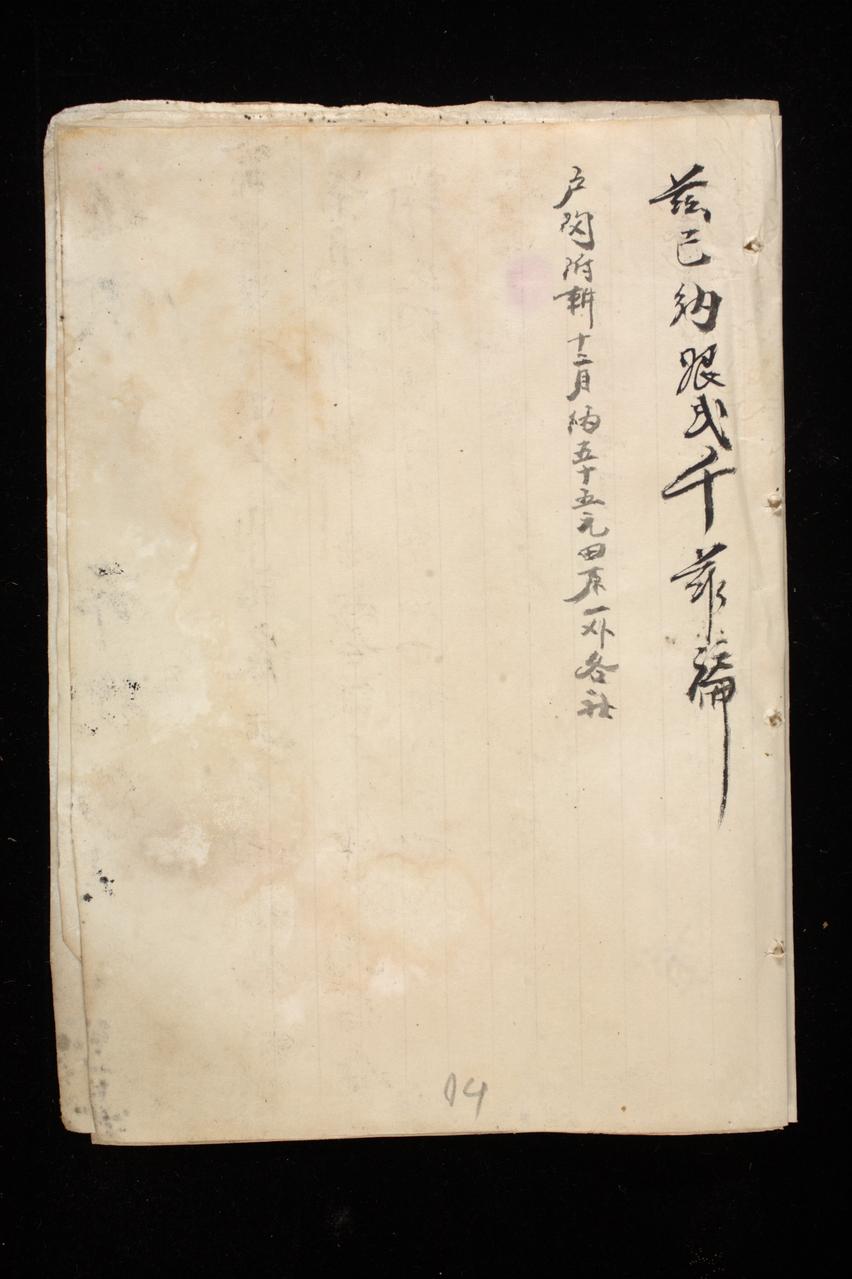 茲已納銀弍千
户閔附耕十二月納五十五元田原一外各社
14